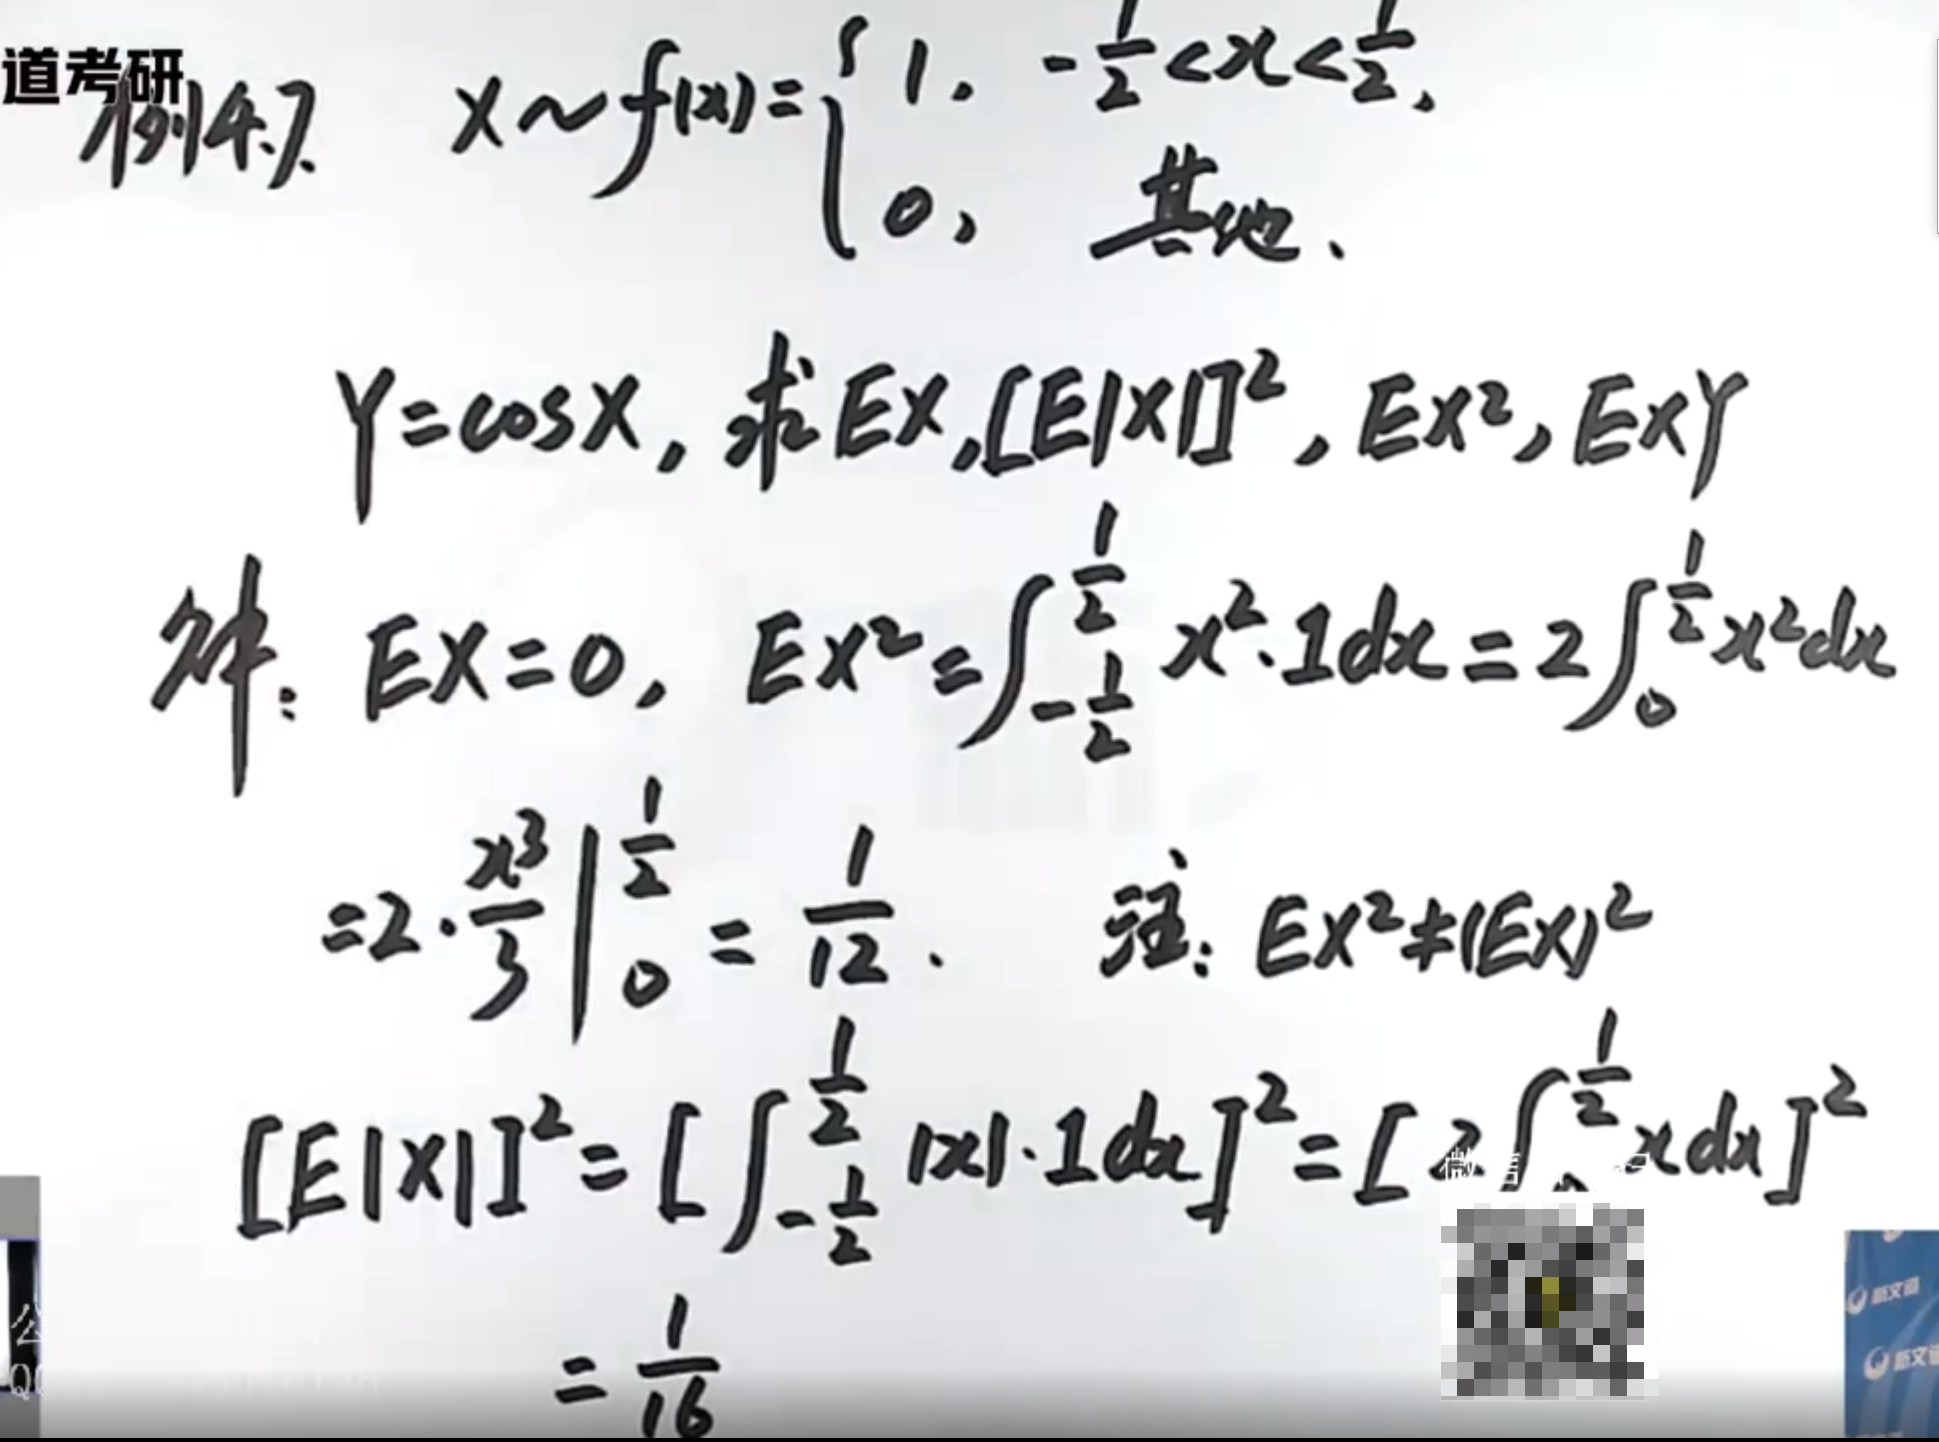 道考研
例4.7. X~f(x)={1, -1/2<x<1/2,
0, 其他.
Y=cosX, 求EX,[E|X|]², EX², EXY
解: EX=0, EX²=∫_{-1/2}^{1/2} x²·1dx=2∫_0^{1/2}x²dx
=2·x³/3|_0^{1/2} = 1/12. 注: EX²≠(EX)²
[E|X|]²=[∫_{-1/2}^{1/2}|x|·1dx]²=[2∫^{1/2}xdx]²
微信
=1/16
新文道
新文道
公
QQ